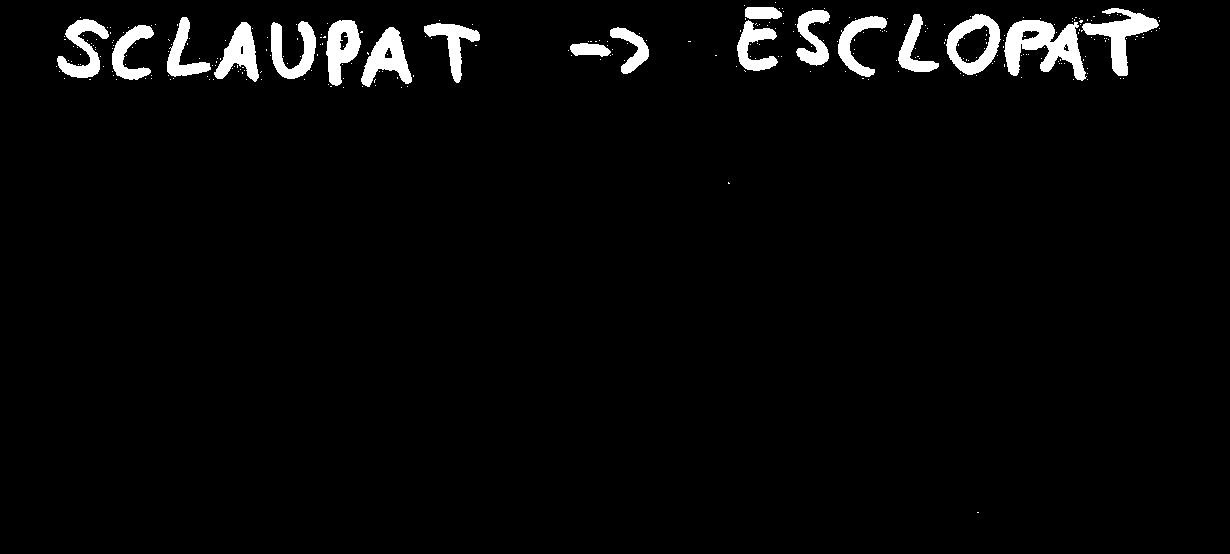 SCLAUPAT -> ESCLOPAT